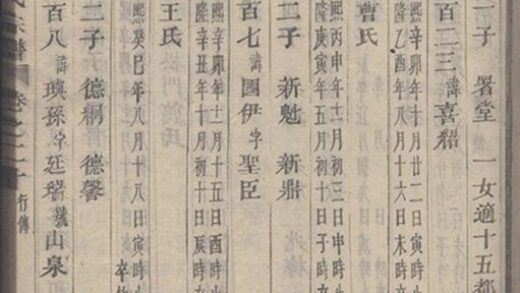 一子 署堂 一女適十五都
百二三諱喜紹
年十月廿二日寅時
隆乙酉年八月十六日未時
曹氏
熙丙申年十二月初三日申時
年五月初十日子時
二子 新魁 新鼎
百七諱國伊字聖臣
熙辛卯年十一月十五日酉時
隆辛丑年十月初十日辰時
王氏
熙癸巳年八月十八日寅時
卒
二子 德綱 德馨
百八諱 孫字廷 號山泉
氏宗譜 卷之二十 行傳